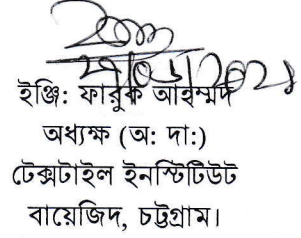 ইঞ্জি: ফারুক আহম্মদ
অধ্যক্ষ (অ: দা:)
টেক্সটাইল ইনস্টিটিউট
বায়েজিদ, চট্টগ্রাম।